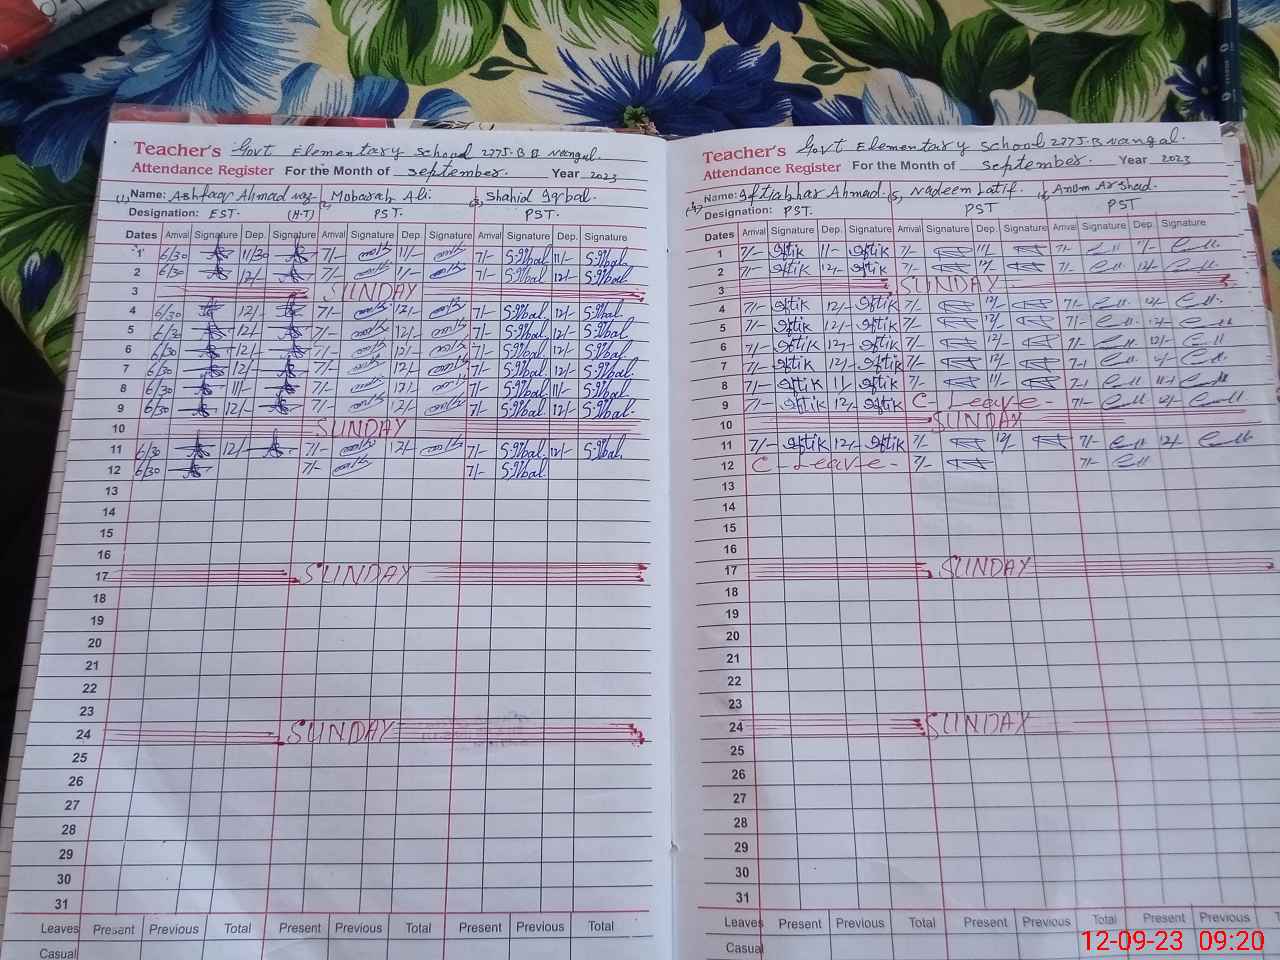 Teacher's Govt Elementary School 277J.B II Nangal.
Attendance Register For the Month of September. Year 2023
(1) Name: Ashfaq Ahmad Mobarah Ali. Shahid Iqbal.
Designation: EST. (H.T) PST. PST.
Dates Arrival Signature Dep. Signature Arrival Signature Dep. Signature Arrival Signature Dep. Signature
1 6/30 11/30 7/- 11/- 7/- S.Iqbal 11/- S.Iqbal
2 6/30 12/- 7/- 11/- 7/- S.Iqbal 12/- S.Iqbal
3 SUNDAY
4 6/30 12/- 7/- 12/- 7/- S.Iqbal 12/- S.Iqbal
5 6/30 12/- 7/- 12/- 7/- S.Iqbal 12/- S.Iqbal
6 6/30 12/- 7/- 12/- 7/- S.Iqbal 12/- S.Iqbal
7 6/30 12/- 7/- 12/- 7/- S.Iqbal 12/- S.Iqbal
8 6/30 11/- 7/- 11/- 7/- S.Iqbal 11/- S.Iqbal
9 6/30 12/- 7/- 12/- 7/- S.Iqbal 12/- S.Iqbal
10 SUNDAY
11 6/30 12/- 7/- 12/- 7/- S.Iqbal 12/- S.Iqbal
12 6/30 7/- 7/- S.Iqbal
13
14
15
16
17 SUNDAY
18
19
20
21
22
23
24 SUNDAY
25
26
27
28
29
30
31
Leaves Present Previous Total Present Previous Total Present Previous Total
Casual
Teacher's Govt Elementary School 277J.B Nangal.
Attendance Register For the Month of September. Year 2023
Name: Iftiakhar Ahmad. Nadeem Latif. Anam Arshad.
Designation: PST. PST PST
Dates Arrival Signature Dep. Signature Arrival Signature Dep. Signature Arrival Signature Dep. Signature
1 7/- Iftik 11/- Iftik 7/- 11/- 7/- 11/-
2 7/- Iftik 12/- Iftik 7/- 12/- 7/- 12/-
3 SUNDAY
4 7/- Iftik 12/- Iftik 7/- 12/- 7/- 12/-
5 7/- Iftik 12/- Iftik 7/- 12/- 7/- 12/-
6 7/- Iftik 12/- Iftik 7/- 12/- 7/- 12/-
7 7/- Iftik 12/- Iftik 7/- 12/- 7/- 12/-
8 7/- Iftik 11/- Iftik 7/- 11/- 7/- 11/-
9 7/- Iftik 12/- Iftik C-Leave- 7/- 12/-
10 SUNDAY
11 7/- Iftik 12/- Iftik 7/- 12/- 7/- 12/-
12 C-Leave- 7/- 7/-
13
14
15
16
17 SUNDAY
18
19
20
21
22
23
24 SUNDAY
25
26
27
28
29
30
31
Leaves Present Previous Total Present Previous Total Present Previous T
Casual
12-09-23 09:20